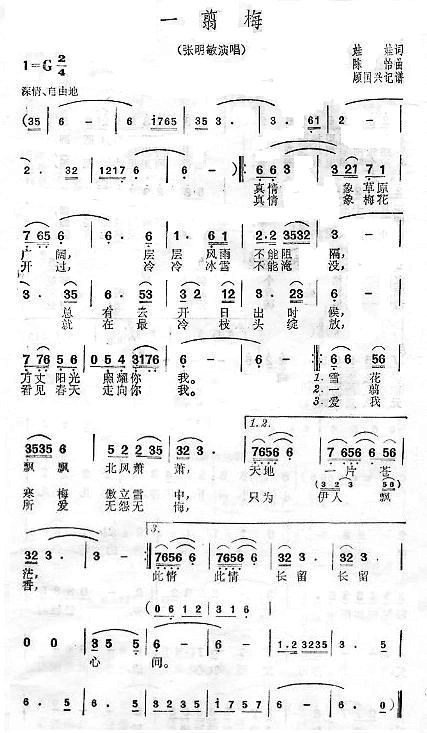 一翦梅
(张明敏演唱)
娃娃词
陈怡曲
顾国兴记谱
1=G 2/4
深情、自由地
(35 6 - 6 i765 35 3 - 3. 61
2. 32 1217 6 6 - 6 -): 6 6 3 3 21 7 1
真情 象草原
真情 象梅花
7 65 6 6. 6 1. 6 1 2.2 3532 3 -
广阔, 层层风雨不能阻隔,
开过, 冷冷冰雪不能淹没,
3. 35 6. 53 3 2 12 3. 23 3 -
总有云开日出时候,
就在最冷枝头绽放,
7 76 5 6 0 5 4 3176 6 - 6 - 6 6 56
万丈阳光照耀你我。 1.雪花
看见春天走向你我。 2.一翦
3.爱我
1.2.
3535 6 5 2 2 35 32 3. 7656 6 7 656 56
飘飘北风萧萧, 天地一片苍
(3 2 3 56)
寒梅傲立雪中, 只为伊人飘
所爱无怨无悔,
3.
32 3. 3 - 7656 6 7656 6 32 3 32 3
茫, 此情 此情 长留 长留
香,
(0 6 1 2 3 1 6
0 0 3 5 5 6 - 6 - 1.2 3235 3.
心间。
6. 5 5. 3 3235 i 757 6 - 6.)